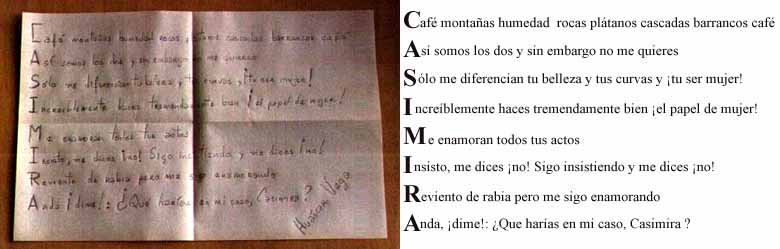 Café montañas humedad rocas plátanos cascadas barrancos café
Así somos los dos y sin embargo no me quieres
Sólo me diferencian tu belleza y tus curvas y ¡tu ser mujer!
Increíblemente haces tremendamente bien ¡el papel de mujer!
Me enamoran todos tus actos
Insisto, me dices ¡no! Sigo insistiendo y me dices ¡no!
Reviento de rabia pero me sigo enamorando
Anda, ¡dime!: ¿Qué harías en mi caso, Casimira?
Huáscar Vega
Café montañas humedad rocas plátanos cascadas barrancos café
Así somos los dos y sin embargo no me quieres
Sólo me diferencian tu belleza y tus curvas y ¡tu ser mujer!
Increíblemente haces tremendamente bien ¡el papel de mujer!
Me enamoran todos tus actos
Insisto, me dices ¡no! Sigo insistiendo y me dices ¡no!
Reviento de rabia pero me sigo enamorando
Anda, ¡dime!: ¿Que harías en mi caso, Casimira ?